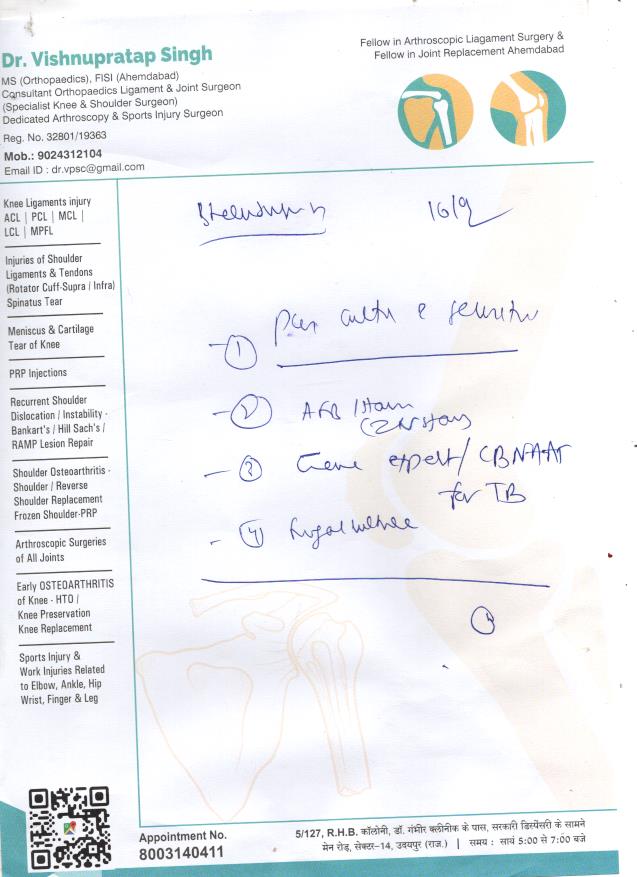 Dr. Vishnupratap Singh
MS (Orthopaedics), FISI (Ahemdabad)
Consultant Orthopaedics Ligament & Joint Surgeon
(Specialist Knee & Shoulder Surgeon)
Dedicated Arthroscopy & Sports Injury Surgeon
Reg. No. 32801/19363
Mob.: 9024312104
Email ID : dr.vpsc@gmail.com
Fellow in Arthroscopic Liagament Surgery &
Fellow in Joint Replacement Ahemdabad
Knee Ligaments injury
ACL | PCL | MCL |
LCL | MPFL
Injuries of Shoulder
Ligaments & Tendons
(Rotator Cuff-Supra / Infra)
Spinatus Tear
Meniscus & Cartilage
Tear of Knee
PRP Injections
Recurrent Shoulder
Dislocation / Instability -
Bankart's / Hill Sach's /
RAMP Lesion Repair
Shoulder Osteoarthritis -
Shoulder / Reverse
Shoulder Replacement
Frozen Shoulder-PRP
Arthroscopic Surgeries
of All Joints
Early OSTEOARTHRITIS
of Knee - HTO /
Knee Preservation
Knee Replacement
Sports Injury &
Work Injuries Related
to Elbow, Ankle, Hip
Wrist, Finger & Leg
16/9
1
2 AFB / Stain
(ZN Stain
3 Gene expert / CBNAAT
for TB
4
Appointment No.
8003140411
5/127, R.H.B. कॉलोनी, डॉ. गंभीर क्लीनीक के पास, सरकारी डिस्पेंसरी के सामने
मेन रोड़, सेक्टर-14, उदयपुर (राज.) | समय : सायं 5:00 से 7:00 बजे